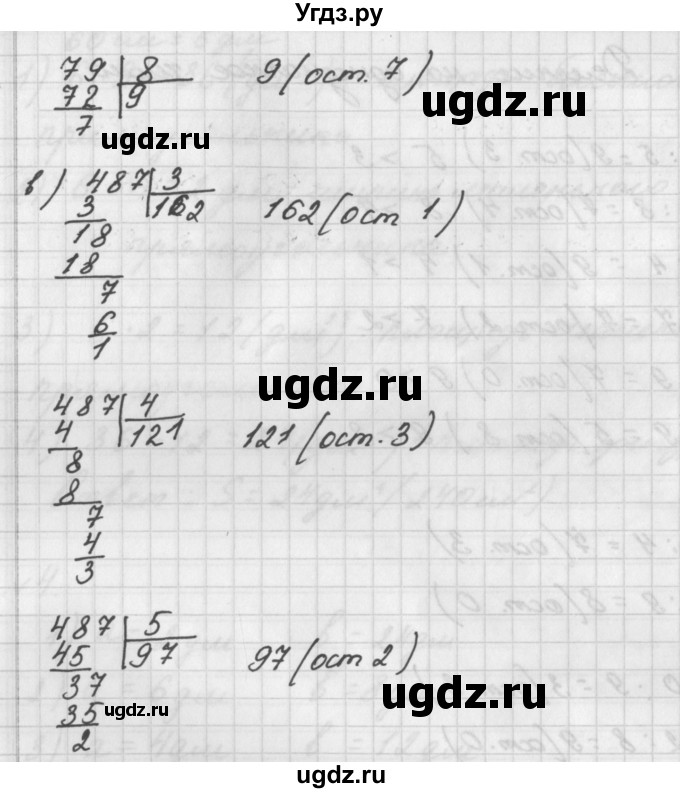 Угдз.ру
79 | 8 9 (ост. 7)
72 | 9
7
ugdz.ru
ugdz.ru
в) 487 | 3
3 | 162 162 (ост 1)
18
18
7
6
1
ugdz.ru
487 | 4
4 | 121 121 (ост. 3)
8
8
7
4
3
487 | 5
45 | 97 97 (ост 2)
37
35
2
ugdz.ru
ugdz.ru
ugdz.ru